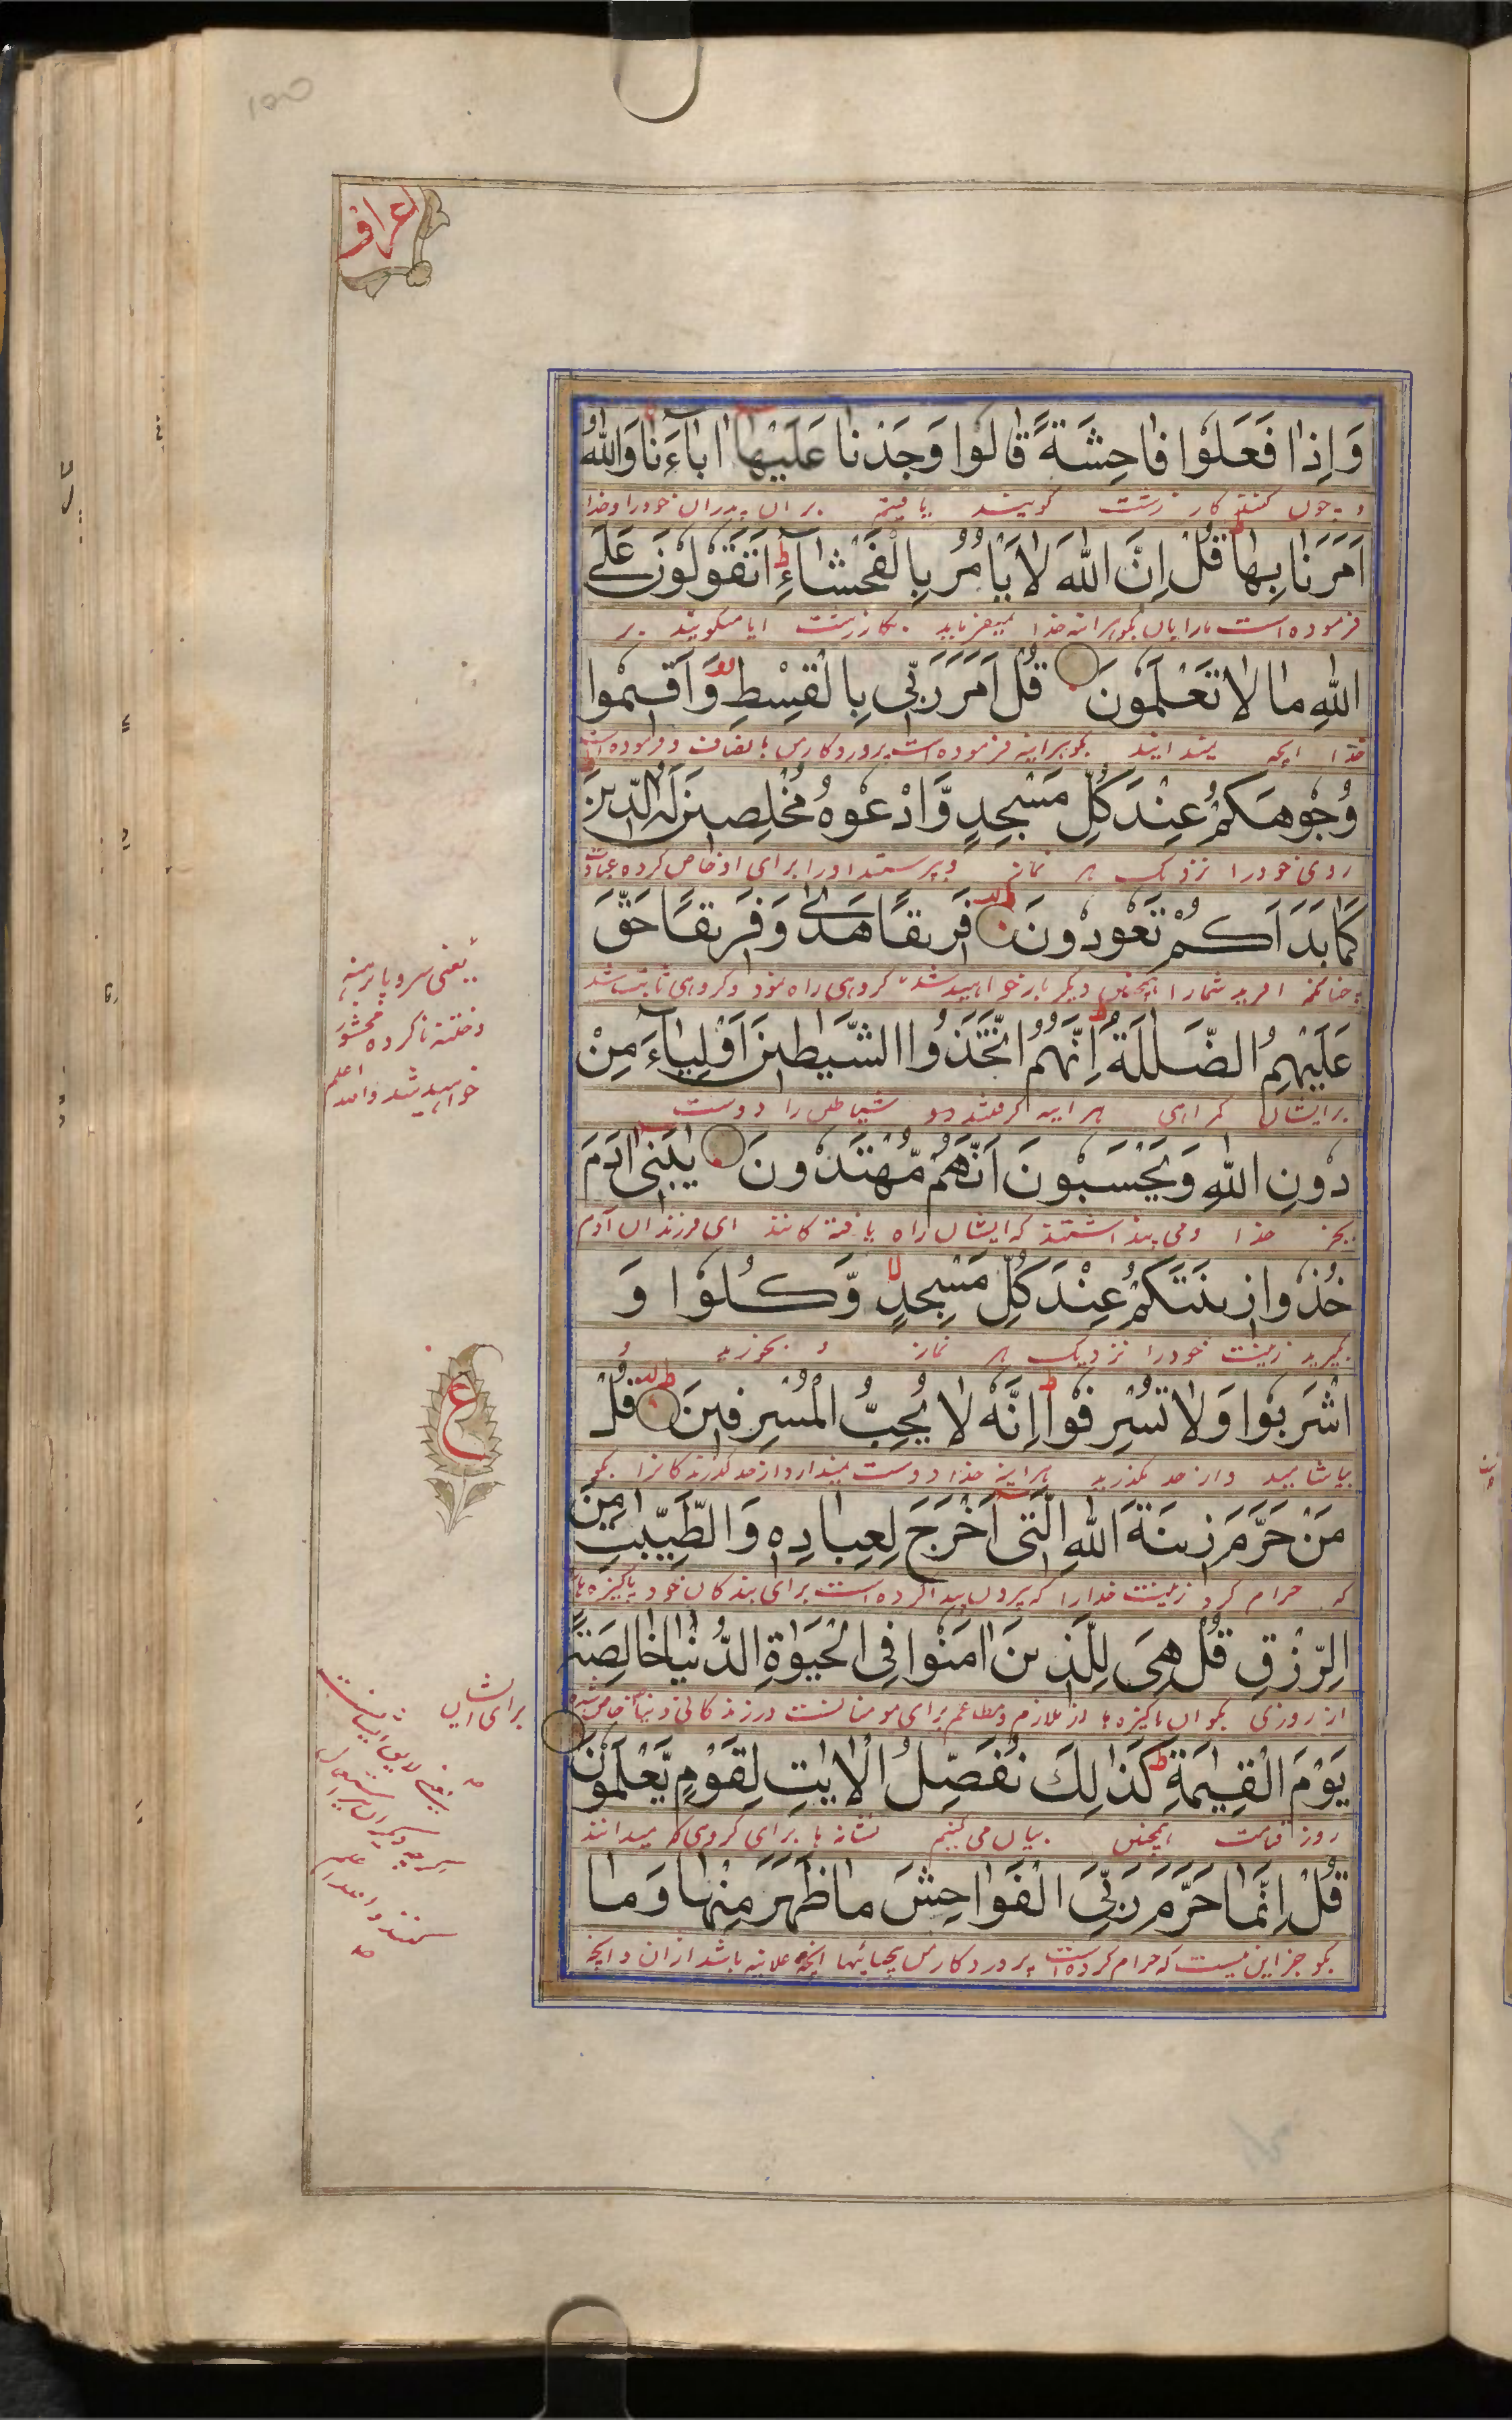 اعراف
وَاِذَا فَعَلُوْا فَاحِشَةً قَالُوْا وَجَدْنَا عَلَيْهَا اٰبَآءَنَا وَاللّٰهُ
و چون کنند کار زشت گویند یافتیم بران پدران خود را و خدا
اَمَرَنَا بِهَا ط قُلْ اِنَّ اللّٰهَ لَا يَاْمُرُ بِالْفَحْشَآءِ ط اَتَقُوْلُوْنَ عَلَى
فرموده است ما را بآن بگو هرآئنه خدا نمیفرماید بکار زشت ایا میگویید بر
اللّٰهِ مَا لَا تَعْلَمُوْنَ قُلْ اَمَرَ رَبِّيْ بِالْقِسْطِ وَاَقِيْمُوْا
خدا انچه نمیدانید بگو هراینه فرموده است پروردگار من بانصاف و فرموده است
وُجُوْهَكُمْ عِنْدَ كُلِّ مَسْجِدٍ وَّادْعُوْهُ مُخْلِصِيْنَ لَهُ الدِّيْنَ
روی خود را نزدیک هر نماز و بپرستید او را برای او خاص کرده عبادت
كَمَا بَدَاَكُمْ تَعُوْدُوْنَ فَرِيْقًا هَدٰى وَفَرِيْقًا حَقَّ
چنانکه افرید شما را همچنین دیگر بار خواهید شد گروهی را راه نمود و گروهی ثابت شد
عَلَيْهِمُ الضَّلٰلَةُ ط اِنَّهُمُ اتَّخَذُوا الشَّيٰطِيْنَ اَوْلِيَآءَ مِنْ
برایشان گمراهی هراینه گرفتند دیو شیاطین را دوست
دُوْنِ اللّٰهِ وَيَحْسَبُوْنَ اَنَّهُمْ مُّهْتَدُوْنَ يٰبَنِيْ اٰدَمَ
بجز خدا و می پنداشتند که ایشان راه یافتگانند ای فرزندان آدم
خُذُوْا زِيْنَتَكُمْ عِنْدَ كُلِّ مَسْجِدٍ لا وَّكُلُوْا وَ
بگیرید زینت خود را نزدیک هر نماز و بخورید و
اشْرَبُوْا وَلَا تُسْرِفُوْا ط اِنَّهٗ لَا يُحِبُّ الْمُسْرِفِيْنَ قُلْ
بیاشامید و از حد مگذرید هراینه خدا دوست نمیدارد از حد گذرندگانرا بگو
مَنْ حَرَّمَ زِيْنَةَ اللّٰهِ الَّتِيْ اَخْرَجَ لِعِبَادِهٖ وَالطَّيِّبٰتِ مِنَ
که حرام کرد زینت خدا را که بیرون پیدا کرده است برای بندگان خود و پاکیزه ها
الرِّزْقِ قُلْ هِيَ لِلَّذِيْنَ اٰمَنُوْا فِي الْحَيٰوةِ الدُّنْيَا خَالِصَةً
از روزی بگو ان پاکیزه ها برای مومنانست در زندگانی دنیا خاص شده
يَوْمَ الْقِيٰمَةِ ط كَذٰلِكَ نُفَصِّلُ الْاٰيٰتِ لِقَوْمٍ يَّعْلَمُوْنَ
روز قیامت همچنین بیان می کنیم نشانه ها برای گروهی که میدانند
قُلْ اِنَّمَا حَرَّمَ رَبِّيَ الْفَوَاحِشَ مَا ظَهَرَ مِنْهَا وَمَا
بگو جز این نیست که حرام کرده است پروردگار من بیحیائیها انچه علانیه باشد ازان و انچه
یعنی سر و پا برهنه
و ختنه ناکرده محشور
خواهید شد والله اعلم
ع
برای ایشان